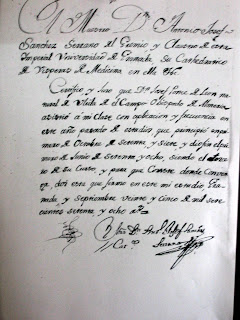 Maestro Dn. Antonio Josef
Sanchez Serrano del Gremio y Claustro de esta
Imperial Universidad de Granada, su Cathedratico
de Visperas de Medicina, en
Certifico y Juro que Dn. Josef Ponce de Leon
natural de de el Campo Obispado de Almeria
asistió à mi clase con aplicacion y frecuencia en
este año pasado de estudios que principió
mero de Octubre de setenta y siete, y diò fin el
mero de Junio de setenta, y ocho, siendo el
de su Curso, y para que Conste donde Conven
ga, doi este que firmo en mi estudio Grana
da, y septiembre veinte y cinco de mil sete
cientos setenta, y ocho
Serrano